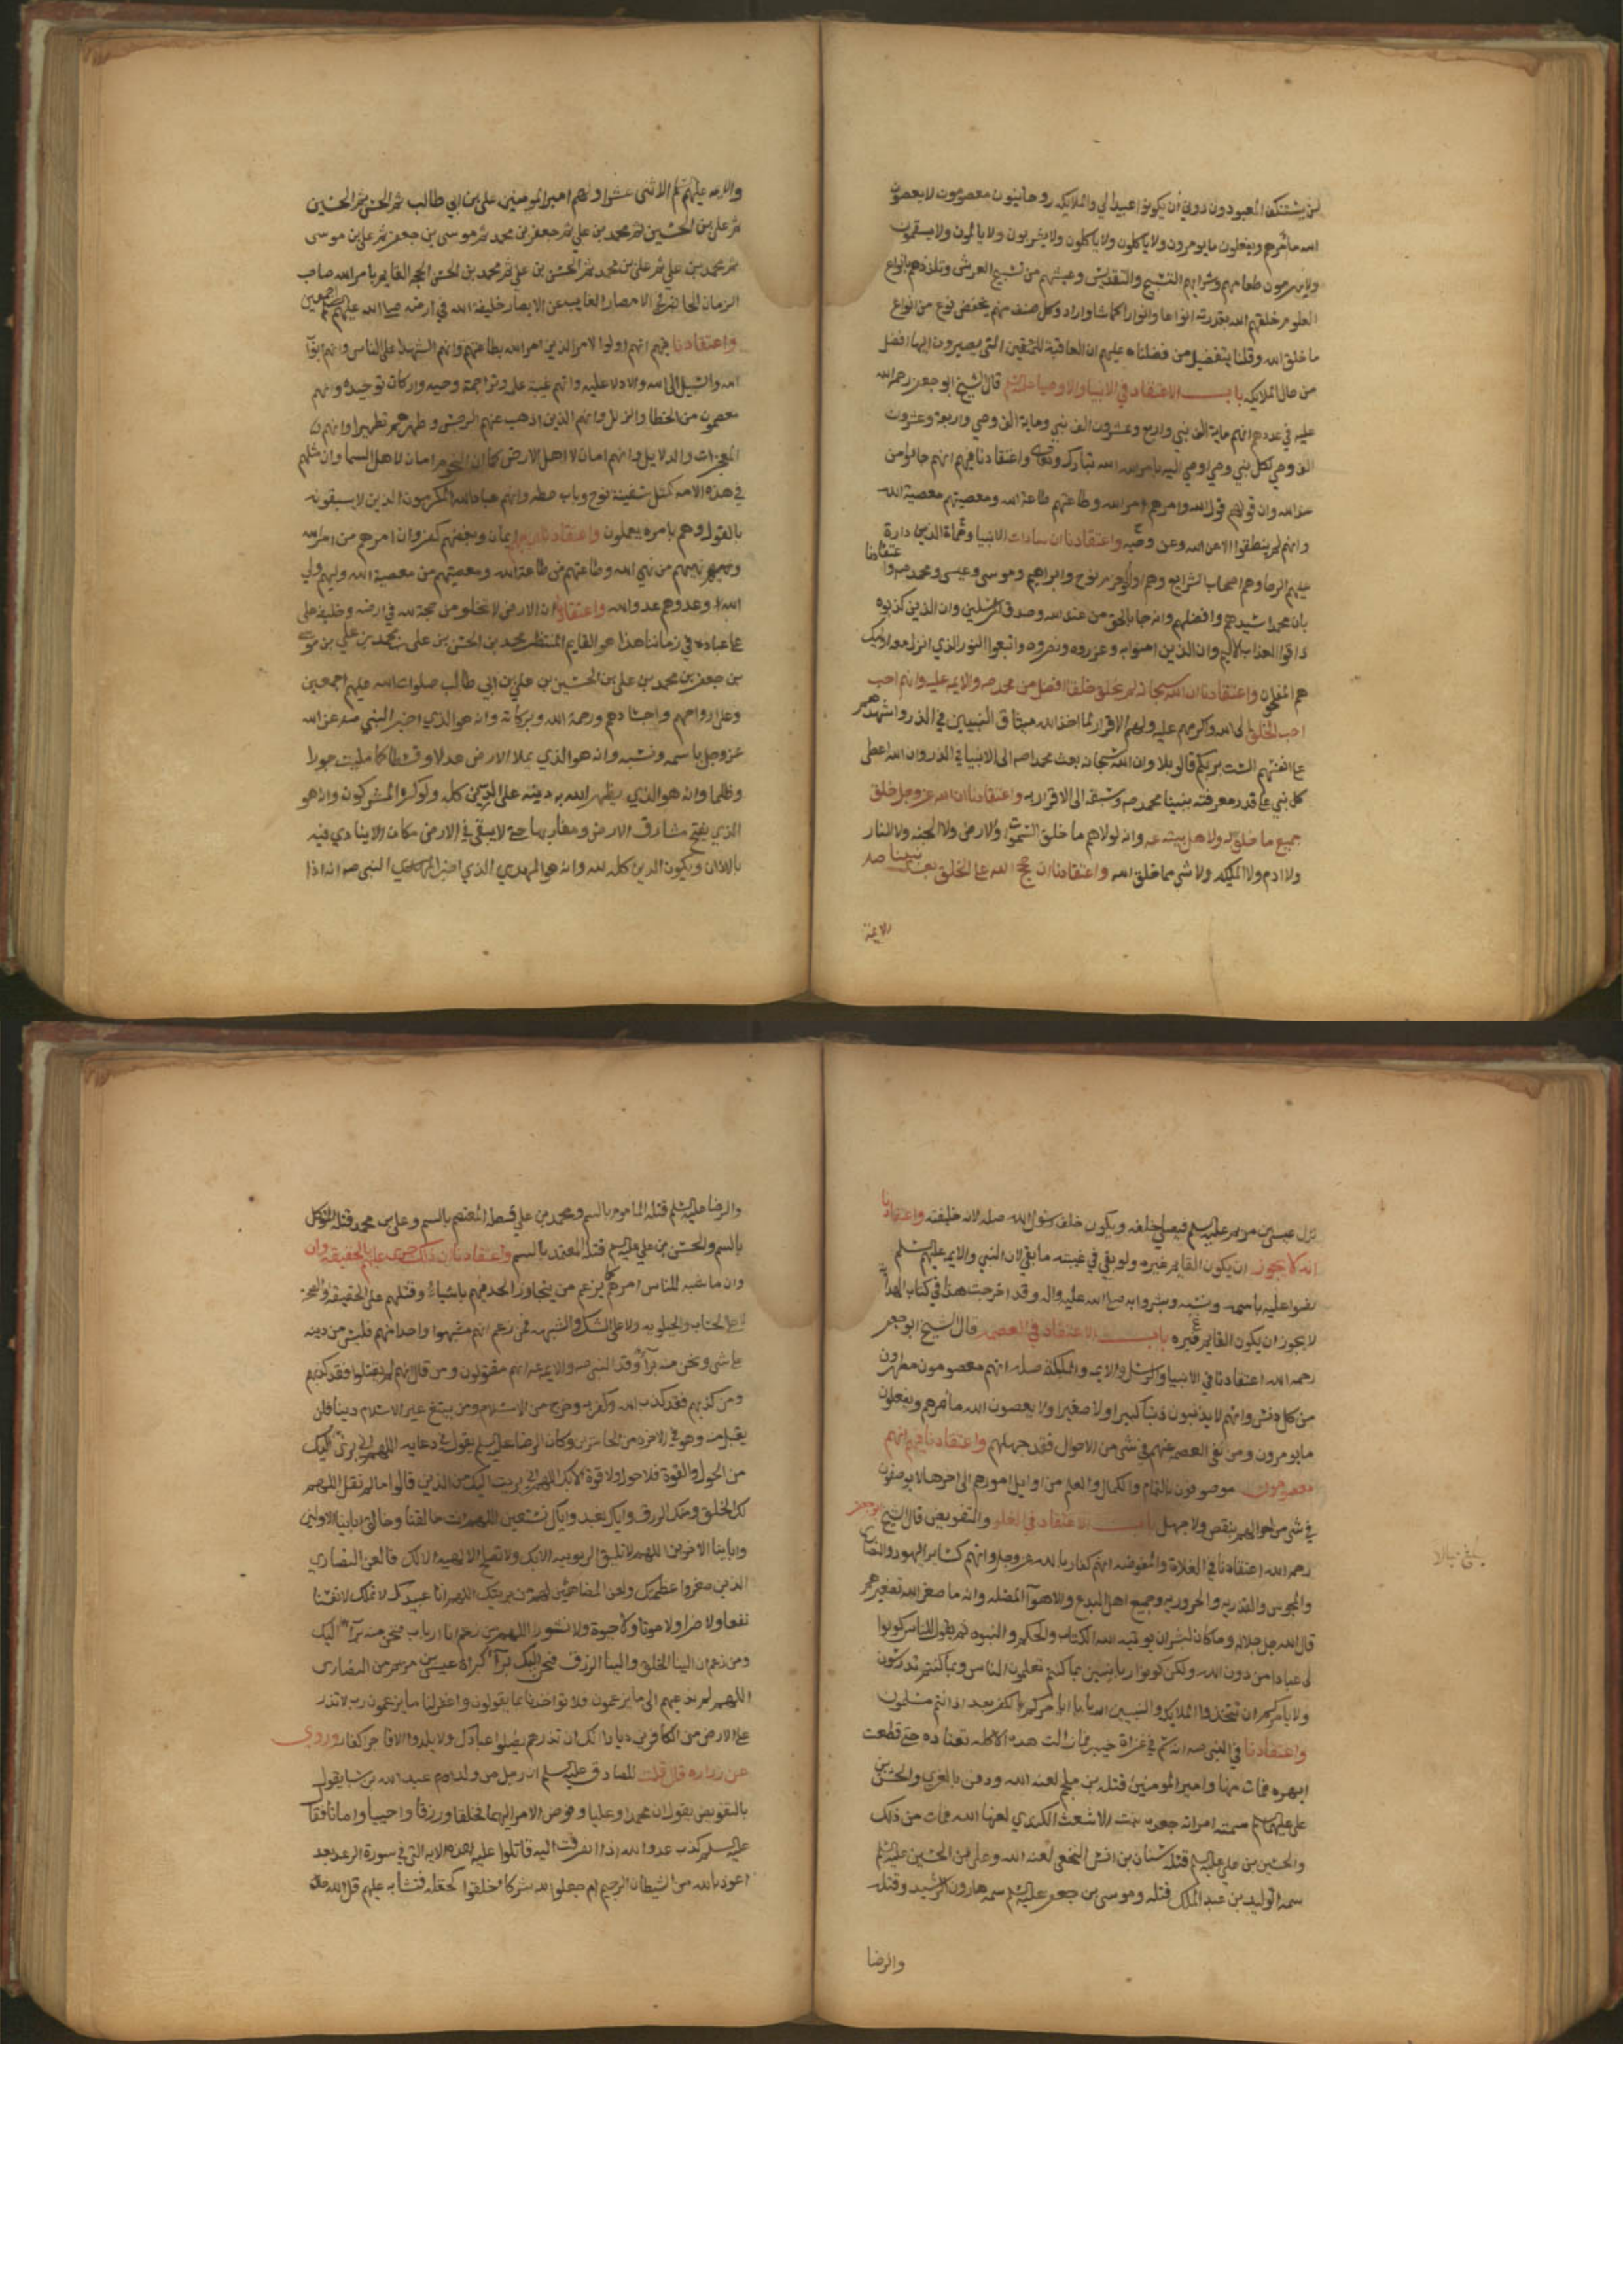 لن يستنكف المعبودون دوني ان يكونوا عبيدا لي والملايكة روحانيون معصومون لا يعصون
الله ما امرهم ويفعلون ما يومرون ولا ياكلون ولا يشربون ولا يالمون ولا يسقمون
ولا يهرمون طعامهم وشرابهم التسبيح والتقديس وعيشهم من نسيم العرش وتلذذهم بانواع
العلوم خلقهم الله بقدرته انوارا كما شا واراد وكل صنف منهم يحفظ نوع من انواع
ما خلق الله وقلنا بتفضيل من فضلناه عليهم ان العاقبة للمتقين التي يصيرون اليها افضل
من حال الملايكه باب الاعتقاد في الانبيا والاوصيا قال الشيخ ابو جعفر رحمه الله
عليه في عددهم انهم ماية الف نبي واربع وعشرون الف نبي وماية الف وصي واربعة وعشرون
الف وصي لكل نبي وصي اوصي اليه بامر الله تبارك وتعالى واعتقادنا فيهم انهم جاوا من
عند الله وان قولهم قول الله وامرهم امر الله وطاعتهم طاعة الله ومعصيتهم معصية الله
وانهم لم ينطقوا الا عن الله وعن وحيه واعتقادنا ان سادات الانبيا دارة
عليهم الرحا وهم اصحاب الشرايع وهم اولو العزم نوح وابراهيم وموسى وعيسى ومحمد صه واعتقادنا
بان محمدا سيدهم وافضلهم وانه جا بالحق من عند الله وصدق المرسلين وان الذين كذبوه
ذاقوا العذاب الاليم وان الذين امنوا به وعزروه ونصروه واتبعوا النور الذي انزل معه اوليك
هم المفلحون واعتقادنا ان الله سبحانه لم يخلق خلقا افضل من محمد صه والايمه عليه وانهم احب
احب الخلق الى الله واكرمهم عليه واولهم الاقرار لما اخذ الله ميثاق النبيين في الذر واشهدهم
على انفسهم الست بربكم قالو بلا وان الله سبحانه بعث محمدا صه الى الانبيا في الذر وان الله اعطى
كل نبي على قدر معرفته بنبينا محمد صه وسبقه الى الاقرار به واعتقادنا ان الله عز وجل خلق
جميع ما خلق له ولاهل بيته عه وانه لولاهم ما خلق السموات والارض ولا الجنه ولا النار
ولا ادم ولا الملايكه ولا شي مما خلق الله واعتقادنا ان حجج الله على الخلق بعد نبينا صه
الايمة
والايمه عليهم السلم الاثنى عشر اولهم امير المومنين علي بن ابي طالب ثم الحسن ثم الحسين
ثم علي بن الحسين ثم محمد بن علي ثم جعفر بن محمد ثم موسى بن جعفر ثم علي بن موسى
ثم محمد بن علي ثم علي بن محمد ثم الحسن بن علي ثم محمد بن الحسن الحجه القايم بامر الله صاحب
الزمان الحاضر في الامصار الغايب عن الابصار خليفة الله في ارضه صلى الله عليهم اجمعين
واعتقادنا فيهم انهم اولوا الامر الذين امر الله بطاعتهم وانهم الشهدا على الناس وانهم ابواب
الله والسبيل الى الله والادلا عليه وانهم عيبة علمه وتراجمة وحيه واركان توحيده وانهم
معصومون من الخطا والزلل وانهم الذين اذهب عنهم الرجس وطهرهم تطهيرا وان لهم
المعجزات والدلايل وانهم امان لاهل الارض كما ان النجوم امان لاهل السما وان مثلهم
في هذه الامه كمثل سفينة نوح وباب حطه وانهم عباد الله المكرمون الذين لا يسبقونه
بالقول وهم بامره يعملون واعتقادنا ان حبهم ايمان وبغضهم كفر وان امرهم من امر الله
ونهيهم من نهي الله وطاعتهم من طاعة الله ومعصيتهم من معصية الله وليهم ولي
الله وعدوهم عدو الله واعتقادنا ان الارض لا تخلو من حجة لله في ارضه وخليفه على
على عباده في زماننا هذا هو القايم المنتظر محمد بن الحسن بن علي بن محمد بن علي بن موسى
بن جعفر بن محمد بن علي بن الحسين بن علي بن ابي طالب صلوات الله عليهم اجمعين
وعلى ارواحهم واجسادهم ورحمة الله وبركاته وانه هو الذي اخبر النبي صه عن الله
عز وجل باسمه ونسبه وانه هو الذي يملا الارض عدلا وقسطا كما مليت جورا
وظلما وانه هو الذي يظهر الله به دينه على الدين كله ولو كره المشركون وانه هو
الذي يفتح مشارق الارض ومغاربها حتى لا يبقى في الارض مكان الا ينادي فيه
بالاذان ويكون الدين كله لله وانه هو المهدي الذي اخبر النبي صه انه اذا
نزل عيسى بن مريم عليه السلم فيصلي خلفه ويكون خلف رسول الله صله لانه خليفته واعتقادنا
انه لا يجوز ان يكون القايم غيره ولو بقي في غيبته ما بقي لان النبي والايمه عليهم السلم
نصوا عليه باسمه ونسبه وبشروا به صلى الله عليه واله وقد اخرجت هذا في كتاب الهدايه
لا يجوز ان يكون القايم غيره باب الاعتقاد في العصمه قال الشيخ ابو جعفر
رحمه الله اعتقادنا في الانبيا والرسل والايمه والملايكة صله انهم معصومون مطهرون
من كل دنس وانهم لا يذنبون ذنبا كبيرا ولا صغيرا ولا يعصون الله ما امرهم ويفعلون
ما يومرون ومن نفى العصمه عنهم في شي من الاحوال فقد جهلهم واعتقادنا فيهم انهم
معصومون موصوفون بالتمام والكمال والعلم من اوايل امورهم الى اخرها لا يوصفون
في شي من احوالهم بنقص ولا جهل باب الاعتقاد في الغلو والتفويض قال الشيخ ابو جعفر
رحمه الله اعتقادنا في الغلاة والمفوضه انهم كفار بالله عز وجل وانهم كساير اليهود والنصارى
والمجوس والقدريه والحروريه وجميع اهل البدع والاهوآ المضله وانه ما صغر الله تصغيرهم
قال الله جل جلاله وما كان لبشر ان يوتيه الله الكتاب والحكم والنبوه ثم يقول للناس كونوا
لي عبادا من دون الله ولكن كونوا ربانيين بما كنتم تعلمون الناس وبما كنتم تدرسون
ولا يامركم ان تتخذوا الملايكه والنبيين اربابا ايامركم بالكفر بعد اذ انتم مسلمون
واعتقادنا في النبي صه انه سم في غزاة خيبر فما زالت هذه الاكله تعتاده حتى قطعت
ابهره فمات منها وامير المومنين قتله بن ملجم لعنه الله ودفن بالغري والحسن بن
علي عليهما السلم سمته امراته جعده بنت الاشعث الكندي لعنها الله فمات من ذلك
والحسين بن علي عليه السلم قتله سنان بن انس النخعي لعنه الله وعلي بن الحسين عليه السلم
سمه الوليد بن عبد الملك فقتله وموسى بن جعفر عليه السلم سمه هارون الرشيد وقتله
والرضا
والرضا عليه السلم قتله المامون بالسم ومحمد بن علي قتله المعتصم بالسم وعلي بن محمد قتله المتوكل
بالسم والحسن بن علي عليه السلم قتله المعتمد بالسم واعتقادنا ان ذلك جرى عليهم بالحقيقه وان
وان ما شبه للناس امرهم كما يزعم من يتجاوز الحد فيهم باشياء وقتلهم على الحقيقه والصحة
لا على الحسبان والخيلوله ولا على الشك والشبهه فمن زعم انهم شبهوا واحدا منهم فليس من دينه
على شي ونحن منه برآء وقد النبي صه والايمه عه انهم مقتولون ومن قال انهم لم يقتلوا فقد كذبهم
ومن كذبهم فقد كذب الله وكفر به وخرج من الاسلام ومن يبتغ غير الاسلام دينا فلن
يقبل منه وهو في الاخره من الخاسرين وكان الرضا عليه السلم يقول في دعايه اللهم اني بريت اليك
من الحول والقوة فلا حول ولا قوة الا بك اللهم اني بريت اليك من الذين قالوا ما لم نقل اللهم
لك الخلق ومنك الرزق واياك نعبد واياك نستعين اللهم انت خالقنا وخالق ابائنا الاولين
وابائنا الاخرين اللهم لا تليق الربوبيه الا بك ولا تصلح الالهيه الا لك فالعن النصارى
الذين صغروا عظمتك والعن المضاهين لهم من بريتك اللهم انا عبيدك لا نملك لانفسنا
نفعا ولا ضرا ولا موتا ولا حيوة ولا نشورا اللهم من زعم انا ارباب فنحن منه برآء اليك
ومن زعم ان الينا الخلق والينا الرزق فنحن اليك برآء كبراة عيسى بن مريم من النصارى
اللهم لم ندعهم الى ما يزعمون فلا تواخذنا بما يقولون واغفر لنا ما يزعمون رب لا تذر
على الارض من الكافرين ديارا انك ان تذرهم يضلوا عبادك ولا يلدوا الا فاجرا كفارا وروي
عن زراره قال قلت للصادق عليه السلم ان رجل من ولد عبد الله بن سبا يقول
بالتفويض يقول ان محمدا وعليا وفوض الامر اليهما فخلقا ورزقا واحييا واماتا فقال
عليه السلم كذب عدو الله اذا انصرفت اليه فاتلوا عليه هذه الايه التي في سورة الرعد بعد
اعوذ بالله من الشيطان الرجيم ام جعلوا لله شركا خلقوا كخلقه فتشابه عليهم قل الله خالق